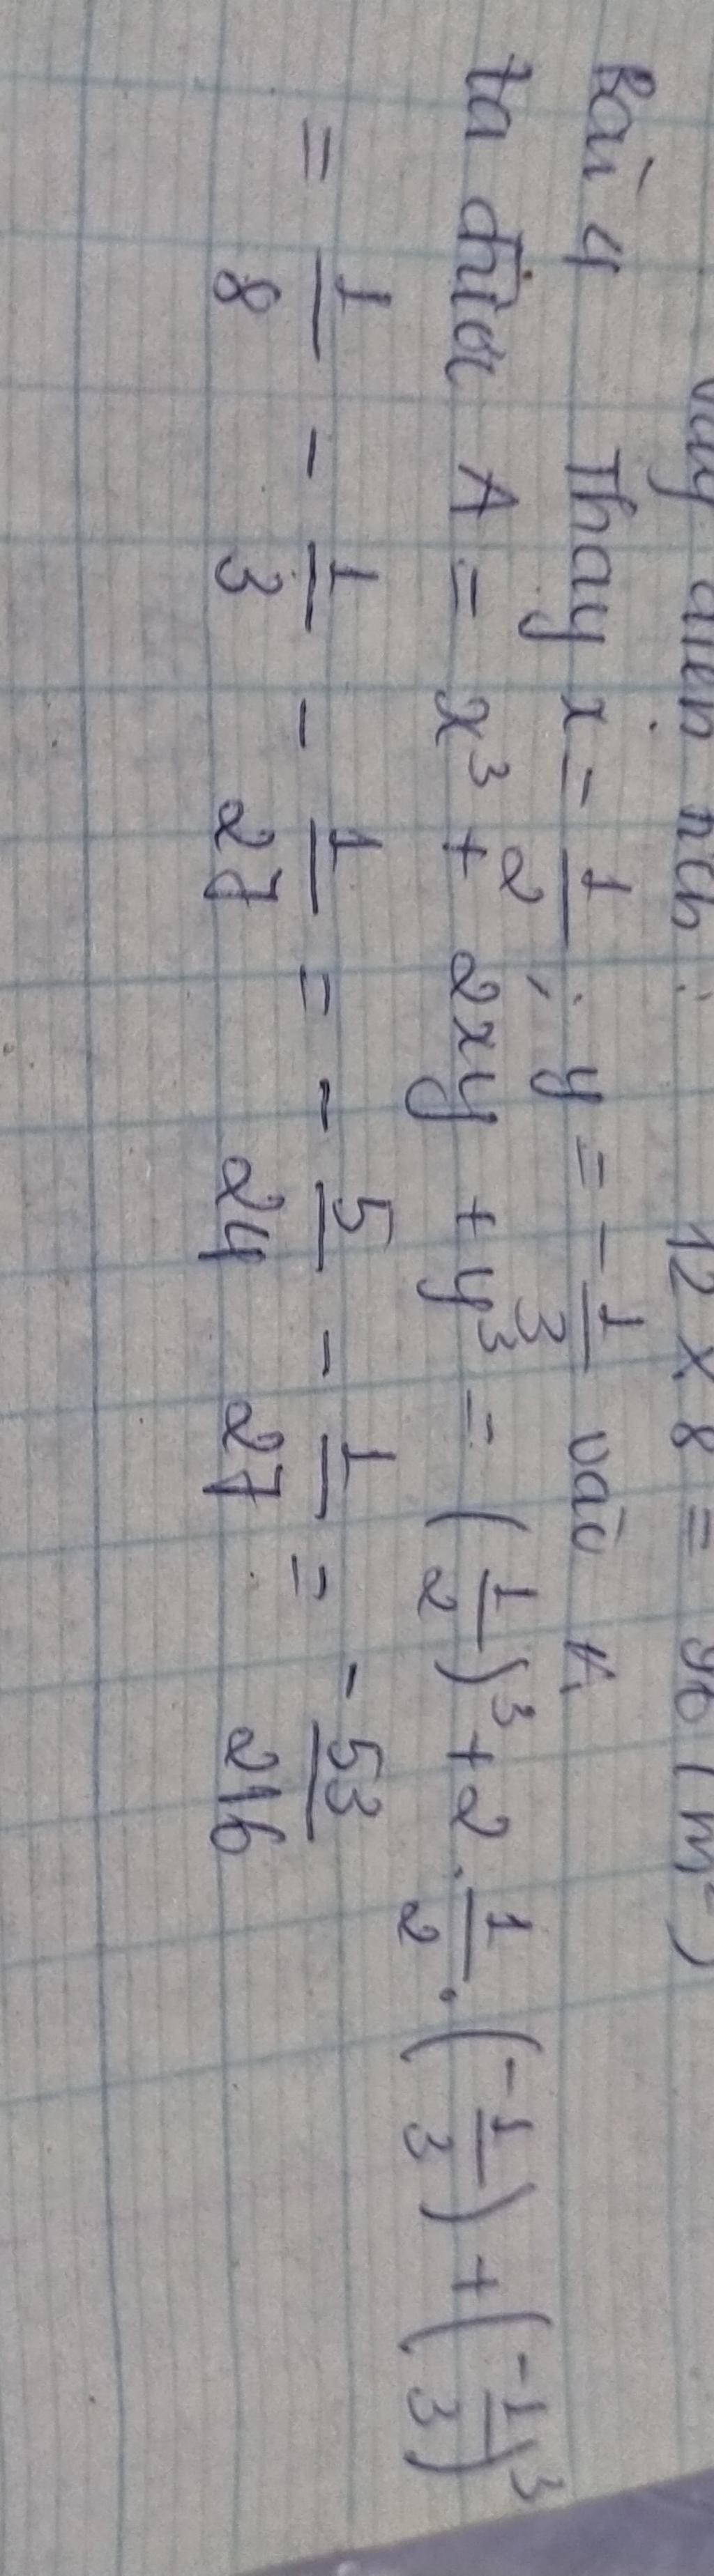 diện tích : 12 x 8 = 96 (m²)
Bài 4 Thay x = 1/2 ; y = -1/3 vào A
ta được A = x³ + 2xy + y³ = (1/2)³ + 2 . 1/2 . (-1/3) + (-1/3)³
= 1/8 - 1/3 - 1/27 = - 5/24 - 1/27 = - 53/216